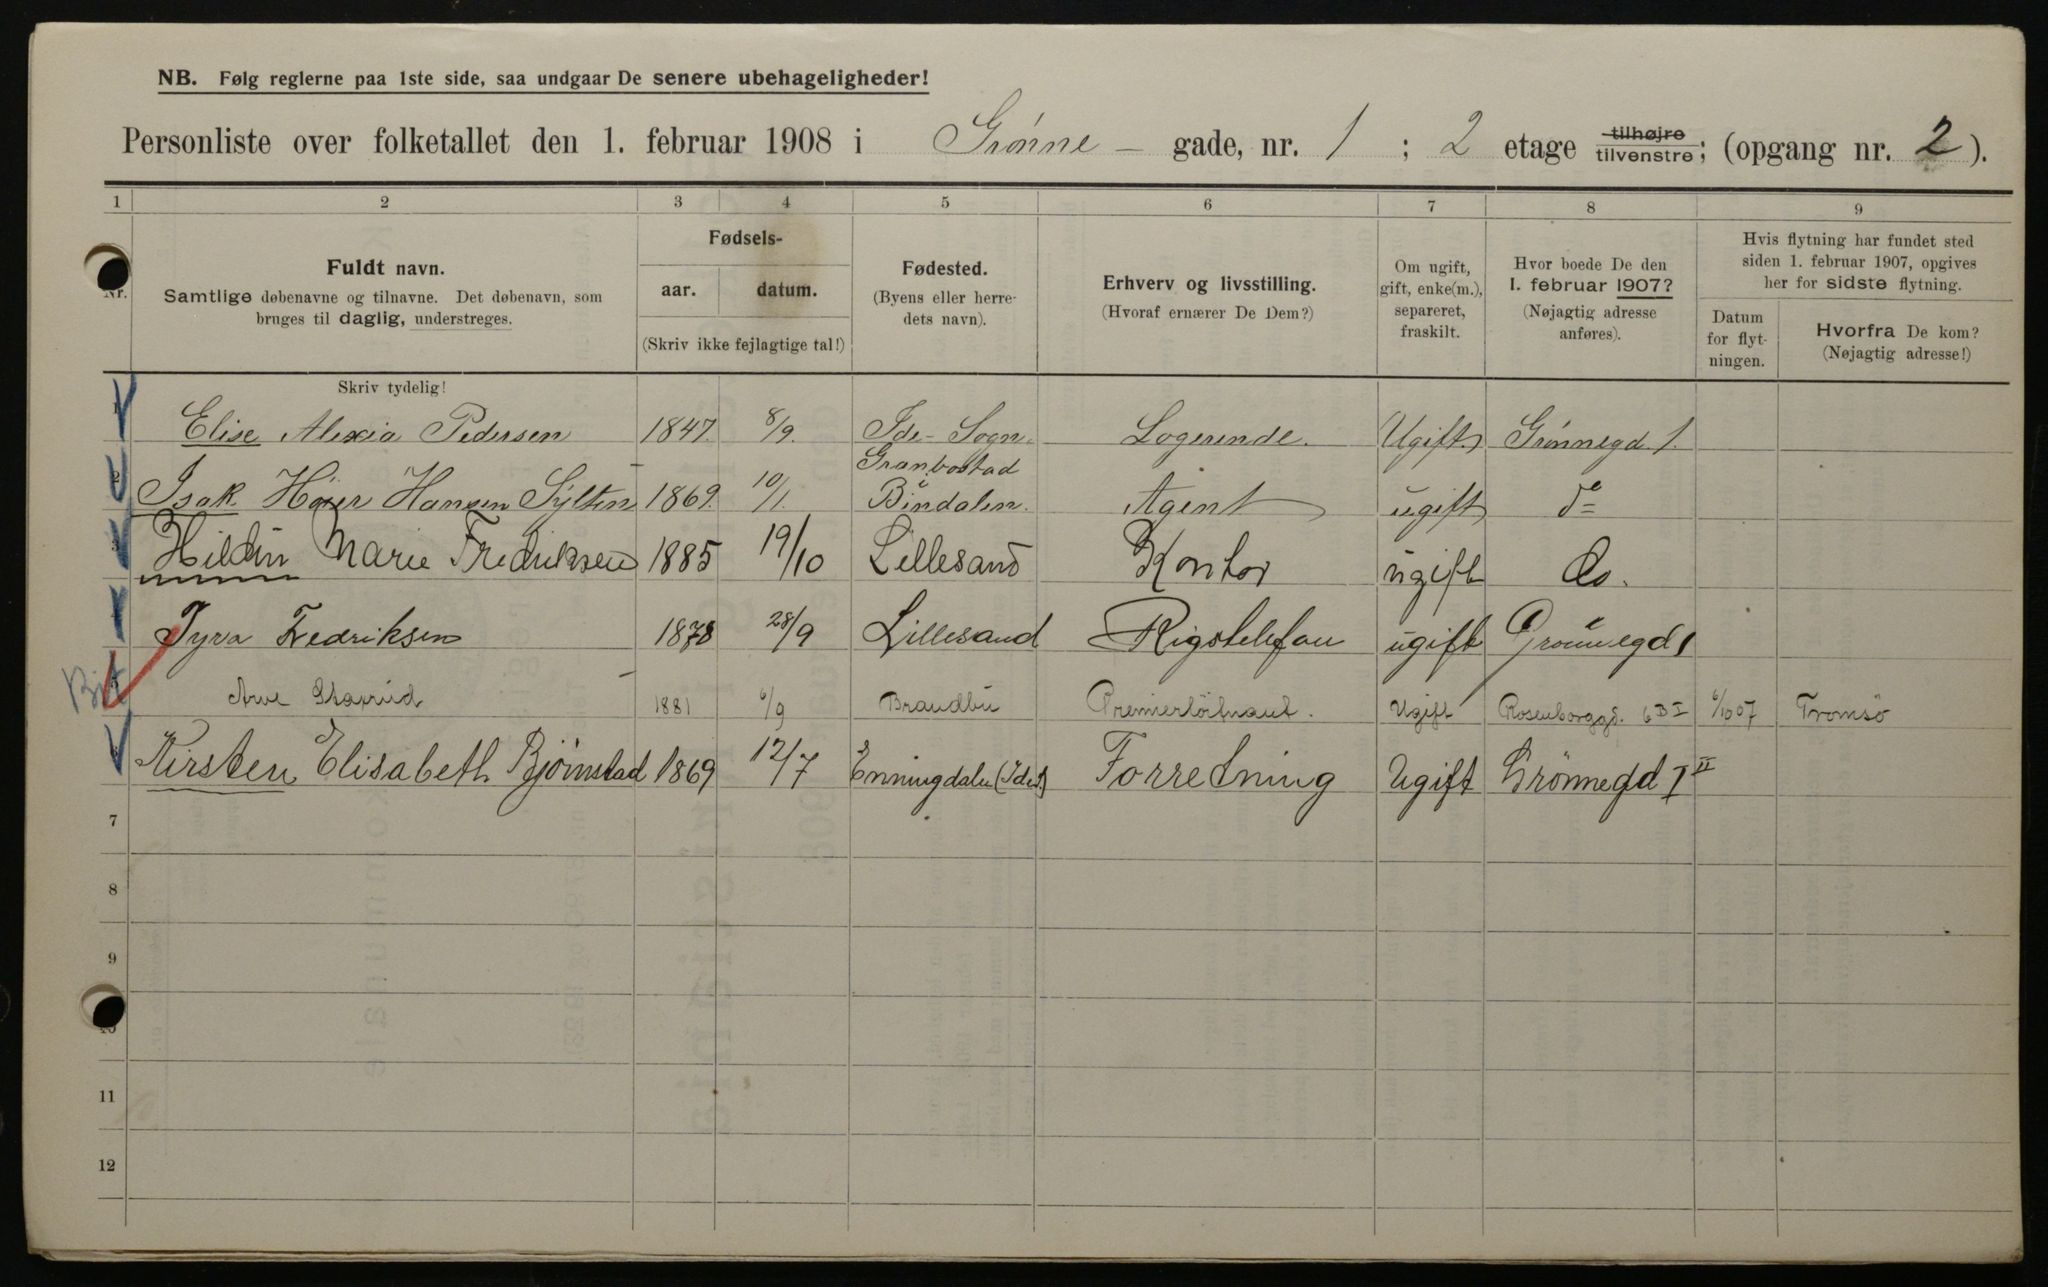 NB. Følg reglerne paa 1ste side, saa undgaar De senere ubehageligheder!
Personliste over folketallet den 1. februar 1908 i Grønne- gade, nr. 1 ; 2 etage tilhøjre tilvenstre; (opgang nr. 2).
1 2 3 4 5 6 7 8 9
Nr.
Fuldt navn.
Samtlige døbenavne og tilnavne. Det døbenavn, som
bruges til daglig, understreges.
Fødsels-
aar. datum.
(Skriv ikke fejlagtige tal!)
Fødested.
(Byens eller herre-
dets navn).
Erhverv og livsstilling.
(Hvoraf ernærer De Dem?)
Om ugift,
gift, enke(m.),
separeret,
fraskilt.
Hvor boede De den
1. februar 1907?
(Nøjagtig adresse
anføres).
Hvis flytning har fundet sted
siden 1. februar 1907, opgives
her for sidste flytning.
Datum
for flyt-
ningen.
Hvorfra De kom?
(Nøjagtig adresse!)
Skriv tydelig!
1 Elise Alexia Pedersen 1847. 8/9. Ide-Sogn. Logerende. Ugift Grønnegd. 1.
2 Isak Høier Hansen Sylten 1869. 10/1. Bindalen. Agent ugift do
3 Marie Fredriksen 1885 19/10 Lillesand Kontor ugift Do.
4 Tyra Fredriksen 1878 28/9 Lillesand Rigstelefon ugift Grønnegd 1
5 Arve Staxrud 1881 6/9 Brandbu Premierløitnant. Ugift Rosenborggd. 6 B I 6/10 07 Tromsø
6 Kirsten Elisabeth Bjørnstad 1869 12/7 Enningdalen (Ide) Forretning Ugift Grønnegd 1 II
7
8
9
10
11
12